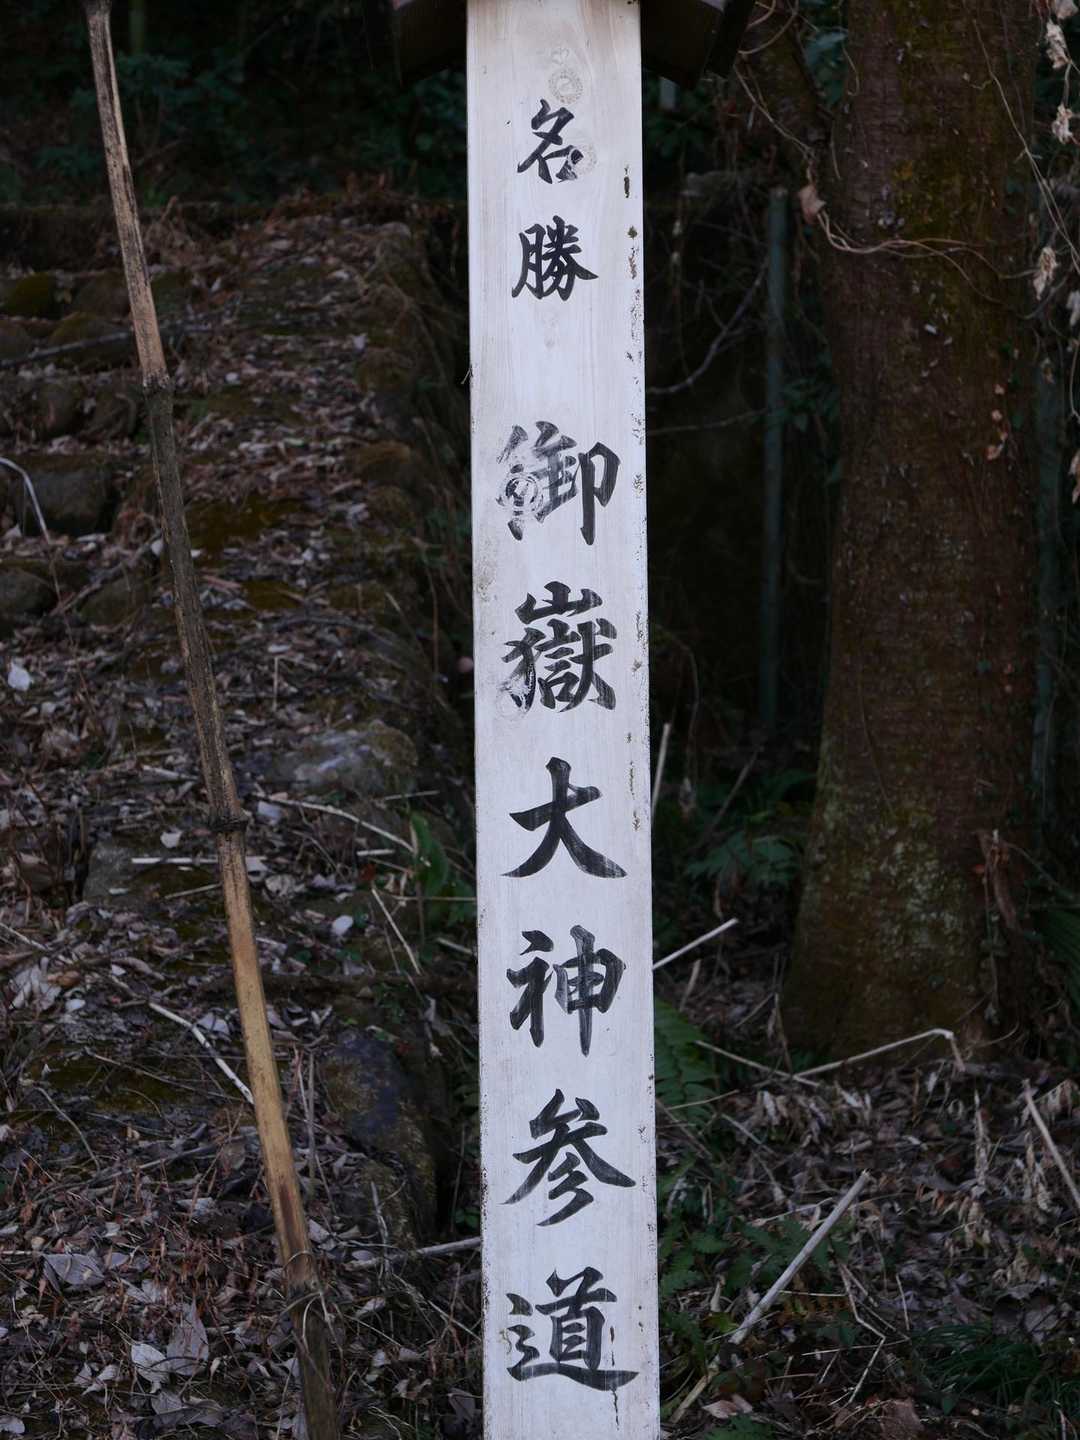 名勝 御嶽大神参道